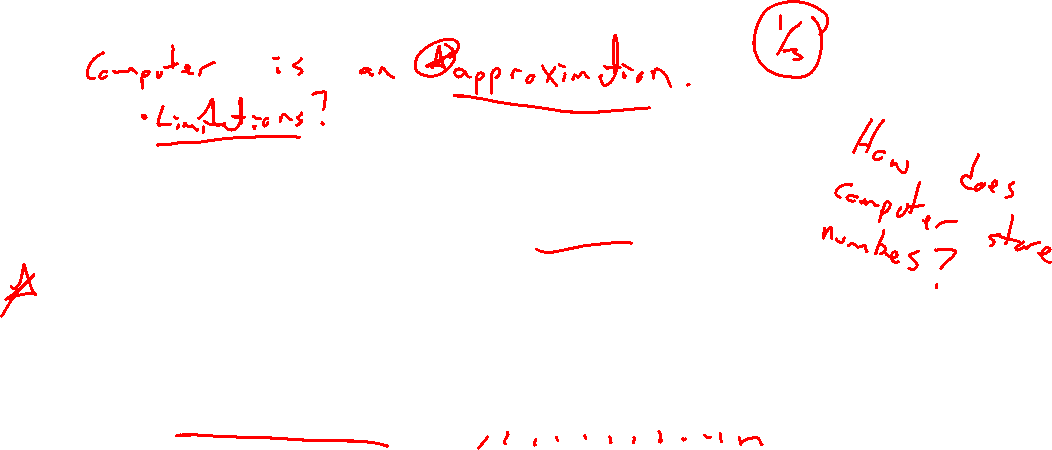 1/3
Computer is an approximation.
• Limitations?
How does
computer store
numbes?